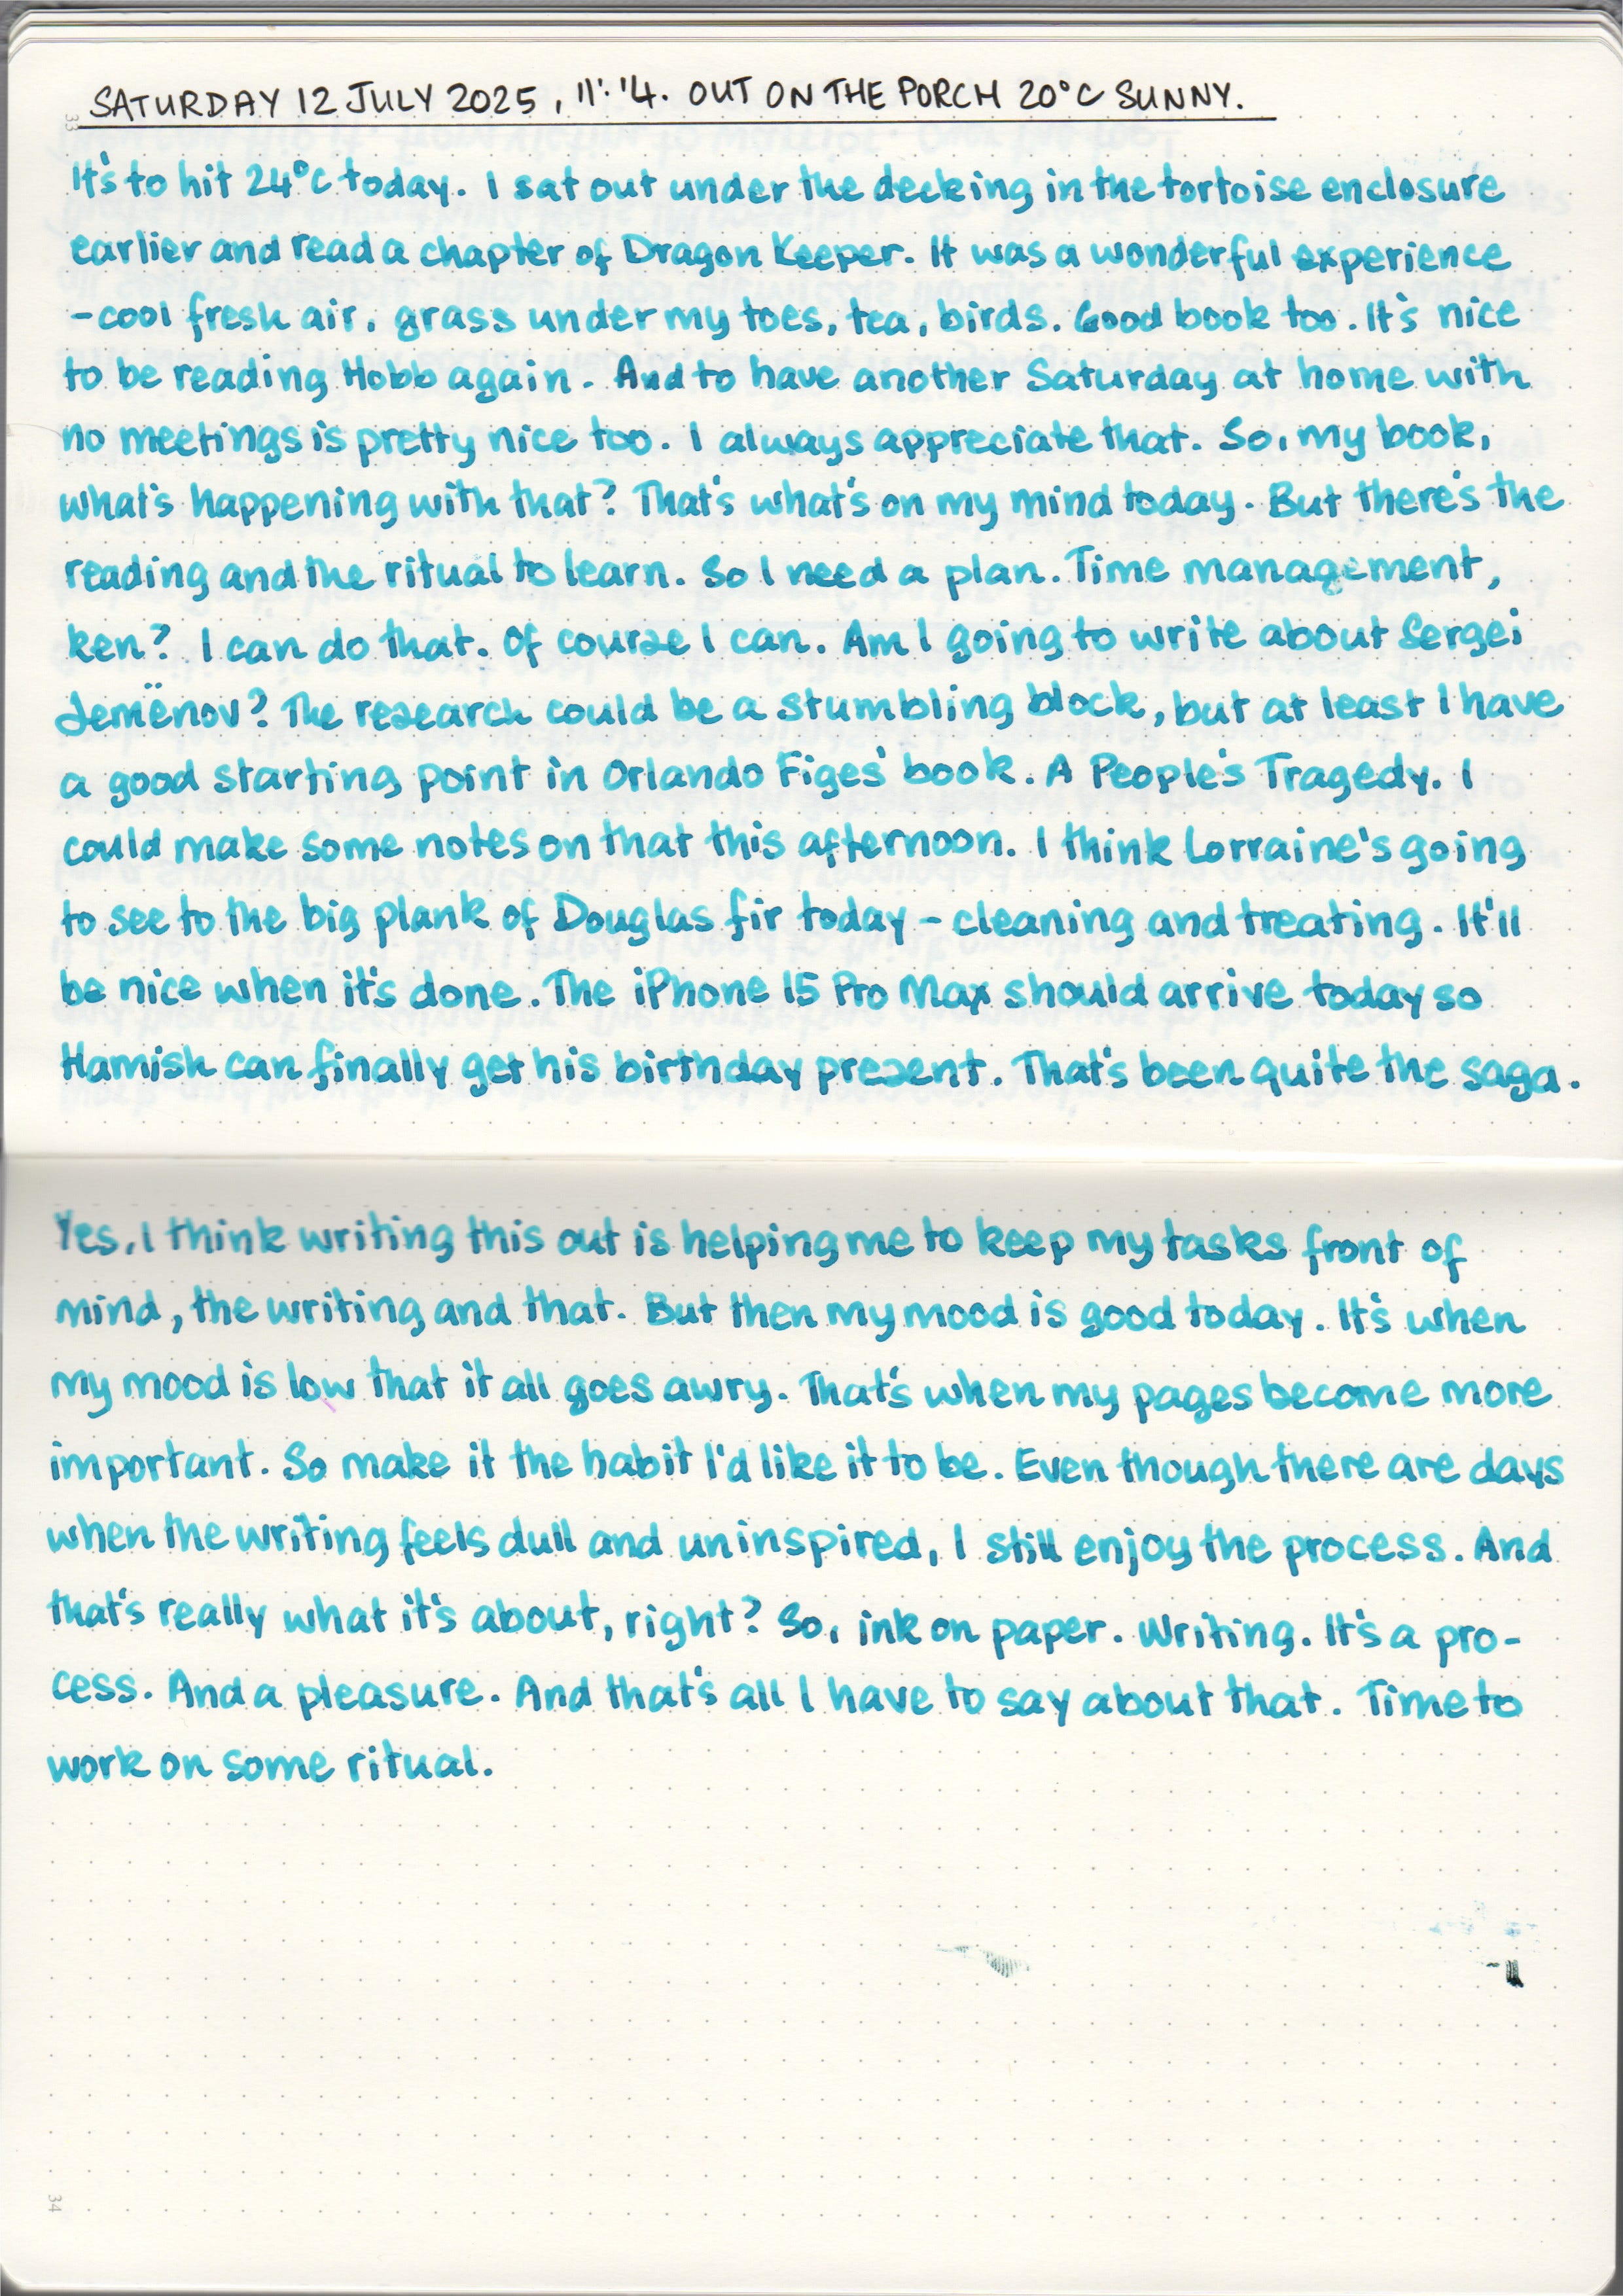 SATURDAY 12 JULY 2025, 11:14. OUT ON THE PORCH 20°C SUNNY.
33
It's to hit 24°C today. I sat out under the decking in the tortoise enclosure
earlier and read a chapter of Dragon Keeper. It was a wonderful experience
-cool fresh air, grass under my toes, tea, birds. Good book too. It's nice
to be reading Hobb again. And to have another Saturday at home with
no meetings is pretty nice too. I always appreciate that. So, my book,
what's happening with that? That's what's on my mind today. But there's the
reading and the ritual to learn. So I need a plan. Time management,
ken? I can do that. Of course I can. Am I going to write about Sergei
Semënov? The research could be a stumbling block, but at least I have
a good starting point in Orlando Figes' book. A People's Tragedy. I
could make some notes on that this afternoon. I think Lorraine's going
to see to the big plank of Douglas fir today - cleaning and treating. It'll
be nice when it's done. The iPhone 15 Pro Max should arrive today so
Hamish can finally get his birthday present. That's been quite the saga.
Yes, I think writing this out is helping me to keep my tasks front of
mind, the writing and that. But then my mood is good today. It's when
my mood is low that it all goes awry. That's when my pages become more
important. So make it the habit I'd like it to be. Even though there are days
when the writing feels dull and uninspired, I still enjoy the process. And
that's really what it's about, right? So, ink on paper. Writing. It's a pro-
cess. And a pleasure. And that's all I have to say about that. Time to
work on some ritual.
34